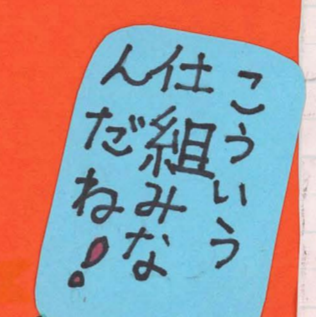 こういう
仕組みな
んだね!